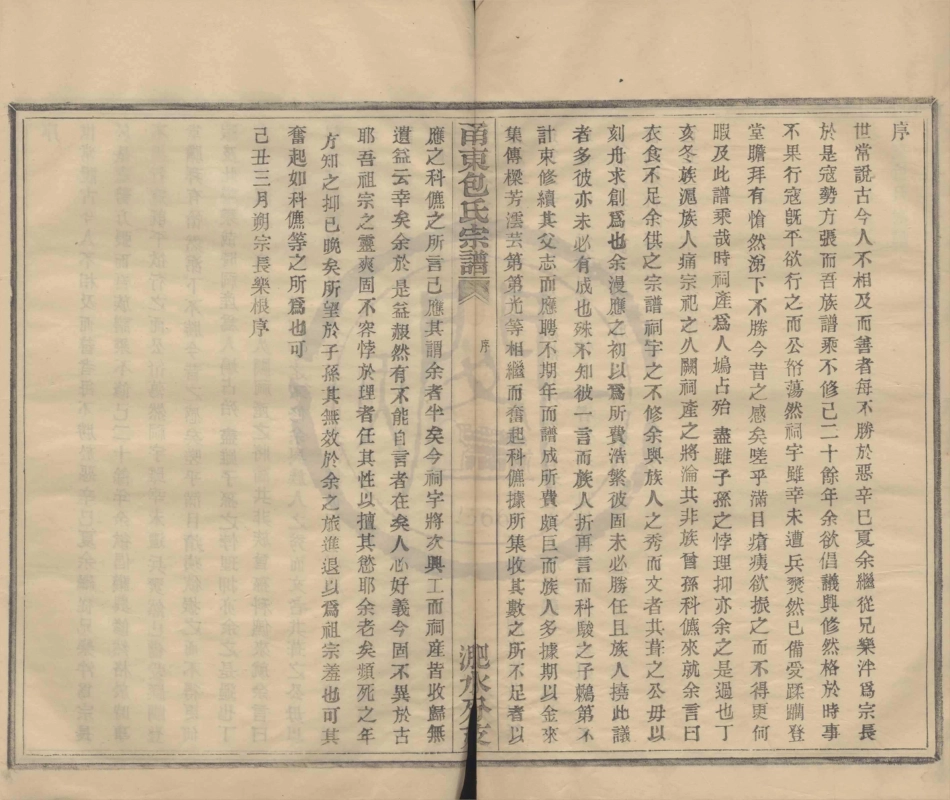 序
世常說古今人不相及而善者每不勝於惡辛巳夏余繼從兄樂泮爲宗長
於是寇勢方張而吾族譜乘不修己二十餘年余欲倡議興修然格於時事
不果行寇旣平欲行之而公帑蕩然祠宇雖幸未遭兵燹然已備受蹂躪登
堂瞻拜有愴然涕下不勝今昔之感矣嗟乎滿目瘡痍欲振之而不得更何
暇及此譜乘哉時祠產爲人鳩占殆盡雖子孫之悖理抑亦余之是過也丁
亥冬族滬族人痛宗祀之久闕祠產之將淪共非族曾孫科儦來就余言曰
衣食不足余供之宗譜祠宇之不修余與族人之秀而文者其葺之公毋以
刻舟求創爲也余漫應之初以爲所費浩繁彼固未必勝任且族人撓此議
者多彼亦未必有成也殊不知彼一言而族人折再言而科駿之子鶼第不
計束修續其父志而應聘不期年而譜成所費頗巨而族人多據期以金來
集傳樑芳澐芸第第光等相繼而奮起科儦據所集收其數之所不足者以
甬東包氏宗譜
序
應之科儦之所言己應其謂余者半矣今祠宇將次興工而祠產皆收歸無
遺益云幸矣余於是益赧然有不能自言者在矣人心好義今固不異於古
耶吾祖宗之靈爽固不容悖於理者任其性以擅其慾耶余老矣頻死之年
方知之抑已晚矣所望於子孫其無效於余之旅進退以爲祖宗羞也可其
奮起如科儦等之所爲也可
己丑三月朔宗長樂根序